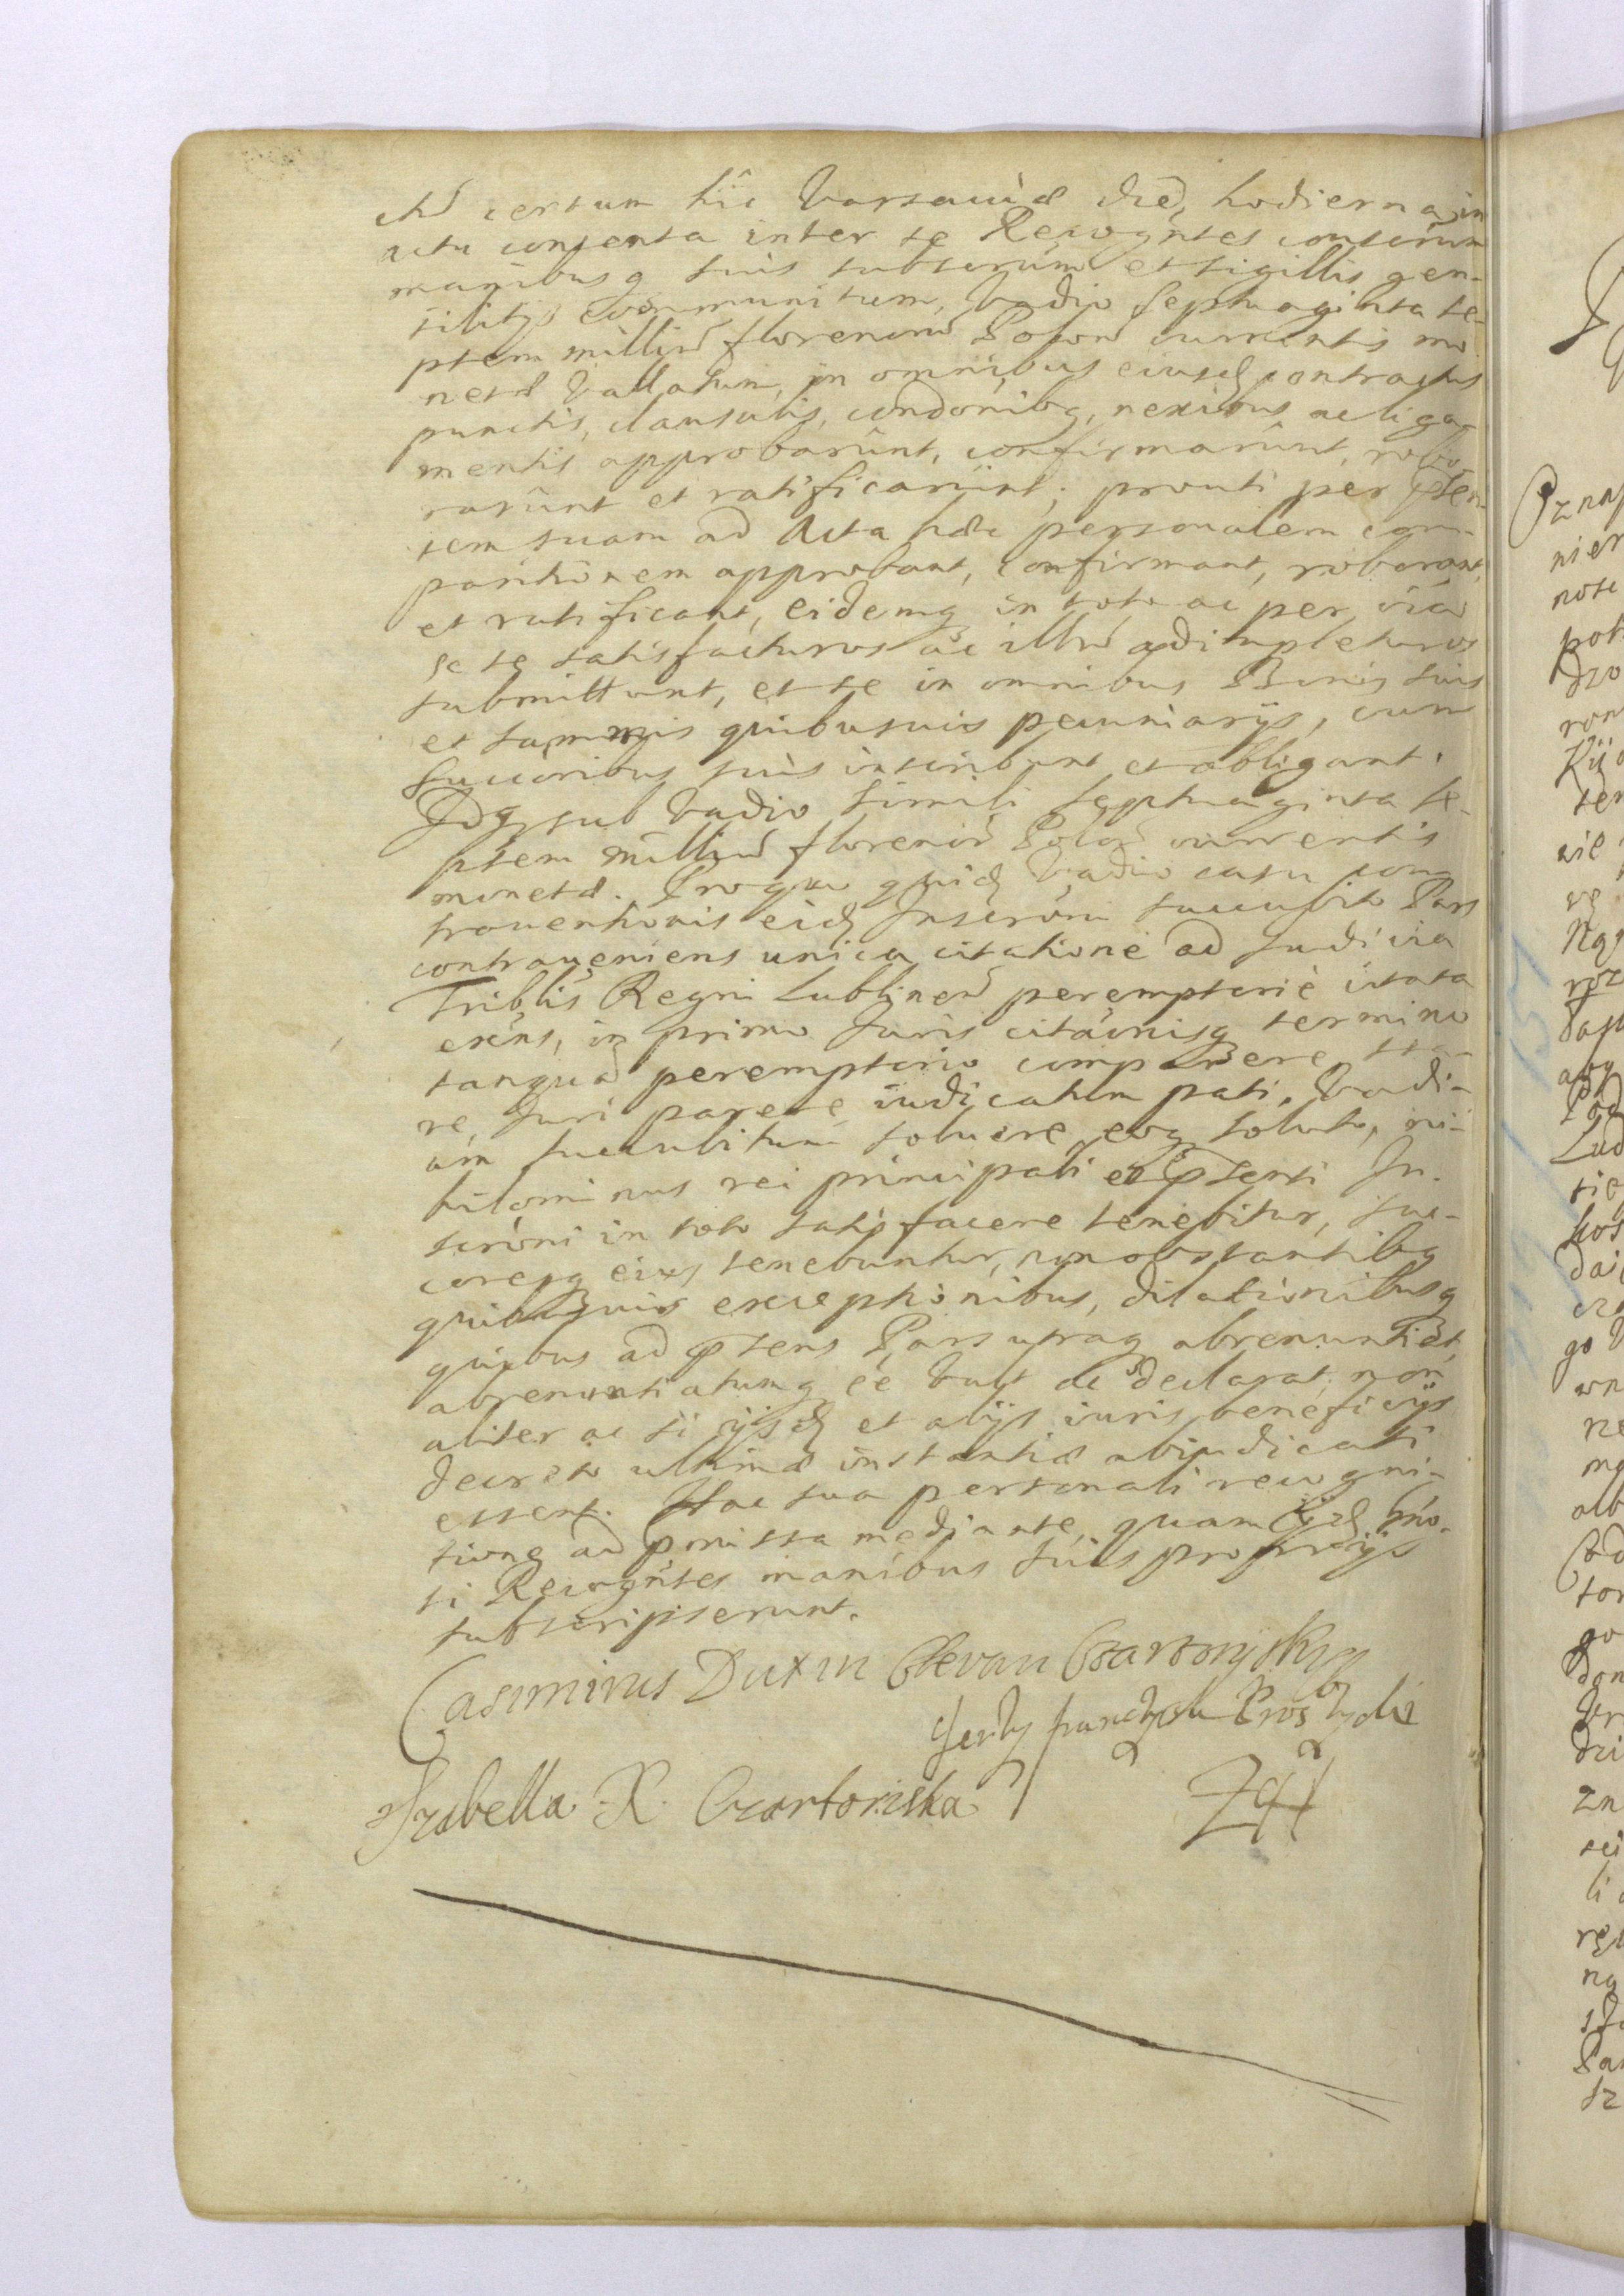 certum hîc Varsauiæ die, hodierna in
actu contenta inter se Recognṫes conscrūm
manibusq suis subscrūm et sigillis gen-
tilitys communitum, Vadio septuaginta se-
ptem milliu florenoru Polon currentis mo
netæ Vallatum, in omnibus eiusd contractus
punctis, clausulis, condonibq, nexibus ac liga-
mentis approbarunt, confirmarunt, robo
rarunt et ratificarunt; prouti per psten-
tem suam ad Acta hæc personalem com-
paritionem approbant, confirmant, roborant,
et ratificant, eidemq in toto ac per oia
se se satisfacturos ac illud adimpleturos
submittunt, et se in omnibus Bonis suis
et summis quibusuis pecuniarys, cum
succoribus suis inscribunt et obligant.
Idq sub Vadio simili septuaginta se-
ptem milliu florenor Polon currentis
monetæ. Pro quo quid Vadio casu con
trauentionis eid Inscroni succubito Pars
contraueniens unica citatione ad Iudicia
Triblis Regni Lublinen peremptorie citata
exens, in primo Iuris citaonisq termino
tanqua peremptorio comparere, sta-
re, Iuri parere iudicatum pati, Vadi-
um succubitum soluere eoq soluto, ni-
hilominus rei principali et psenti In-
scroni in toto satisfacere tenebitur, suc-
coresq eius tenebuntur, non obstantibq
quibusuis exceptionibus, dilationibusq
quibus ad psens Pars utraq abrenuntiat,
abrenuntiatumq eê Vult ac declarat, non
aliter ac si ijsd et alijs iuris beneficijs
decreto ultimæ instantiæ abiudicati
essent. Hac sua personali recogni-
tione ad pmissa mediante, quam ijd
ti Recognṫes manibus suis proprijs
subscripserunt.
Casimirus Dux in Clevan Czartoryski
Jerzy franciszek
Izabella X. Czartoriska